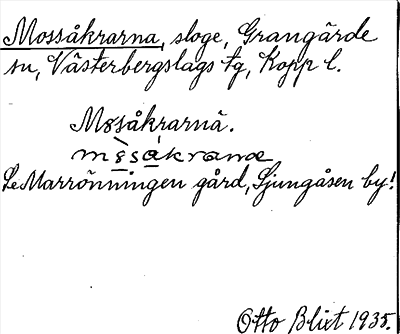 Mossåkrarna, sloge, Grangärde
sn, Västerbergslags tg, Kopp l.
Måsåkrarnä.
Se Marrönningen gård, Ljungåsen by!
Otto Blixt 1935.